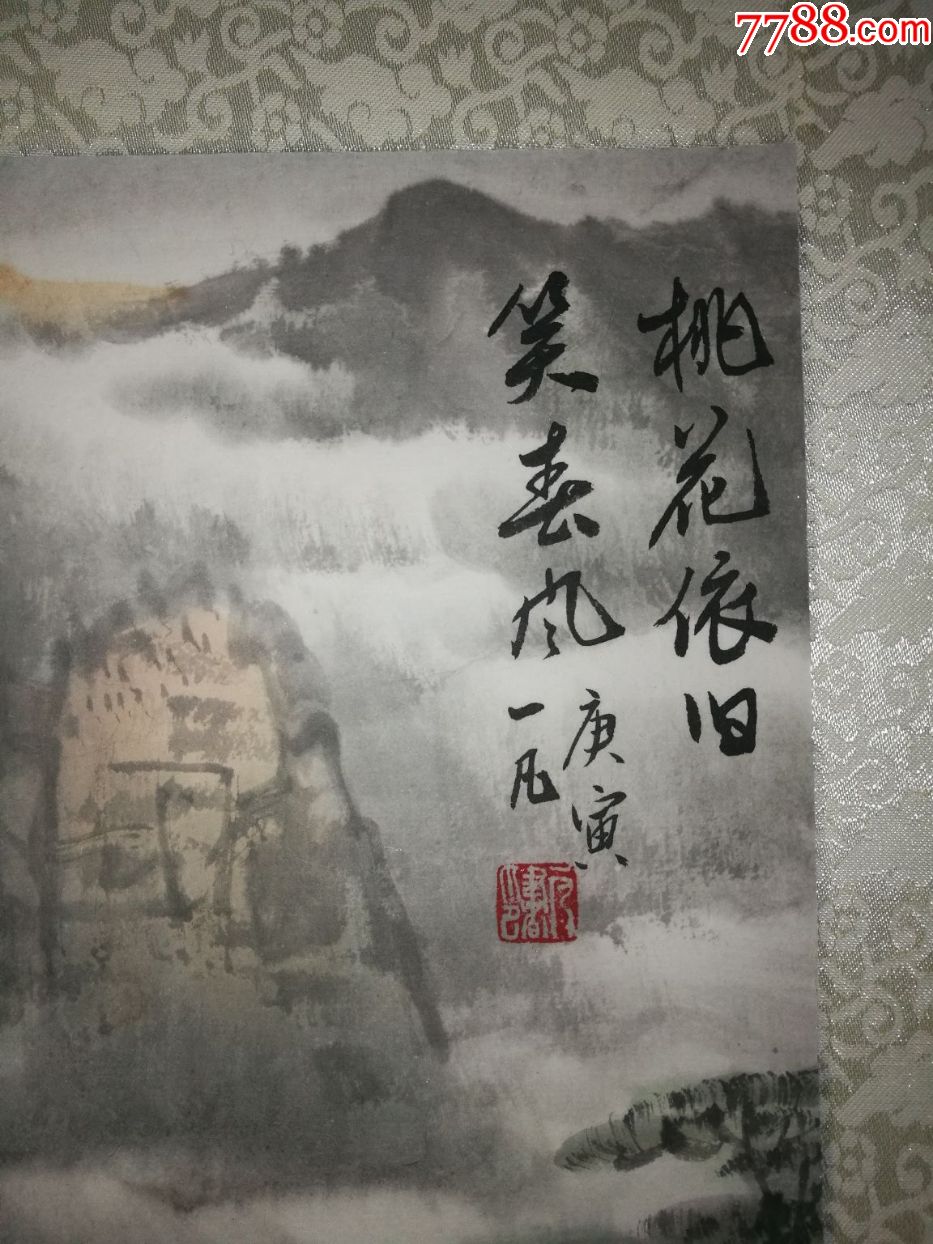 7788.com
桃花依旧
笑春风
庚寅
一凡